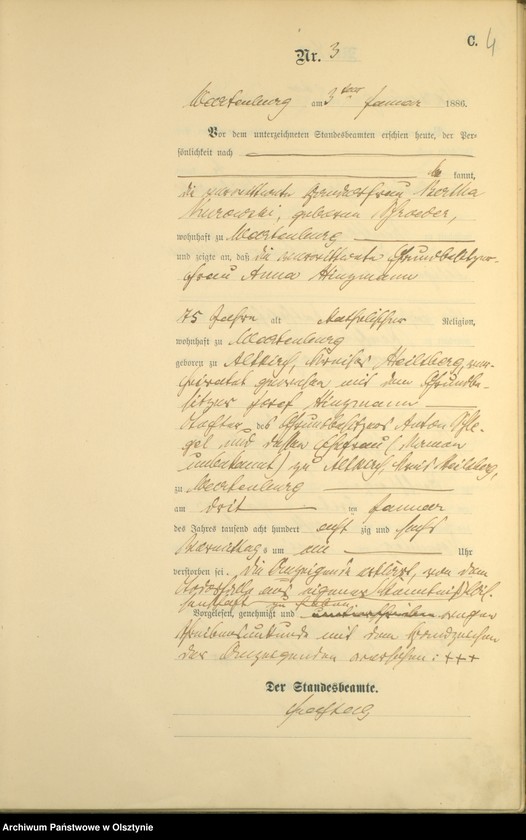 C. 4
Nr. 3
Wartenburg am 3ten Januar 1886.
Vor dem unterzeichneten Standesbeamten erschien heute, der Per-
sönlichkeit nach
be kannt,
die verwittwete Bertha
Kurowski, geborene Schroeder,
wohnhaft zu Wartenburg
und zeigte an, daß die verwittwete Grundbesitzer-
frau Anna Hinzmann
75 Jahre alt katholischer Religion,
wohnhaft zu Wartenburg
geboren zu Altkirch, Kreises Heilsberg, ver-
heirathet gewesen mit dem Grundbe-
sitzer Josef Hinzmann
Tochter des Grundbesitzers Anton
und dessen Ehefrau (Namen
unbekannt) zu Altkirch, Kreis Heilsberg,
zu Wartenburg
am drei ten Januar
des Jahres tausend acht hundert acht zig und sechs
Vormittags um Uhr
verstorben sei. Die Anzeigende erklärt, von dem
Todesfalle aus eigener Wissen-
schaft zu haben.
Vorgelesen, genehmigt und unterschrieben wegen
Schreibensunkunde mit dem Handzeichen
der Anzeigenden versehen: +++
Der Standesbeamte.
Archiwum Państwowe w Olsztynie